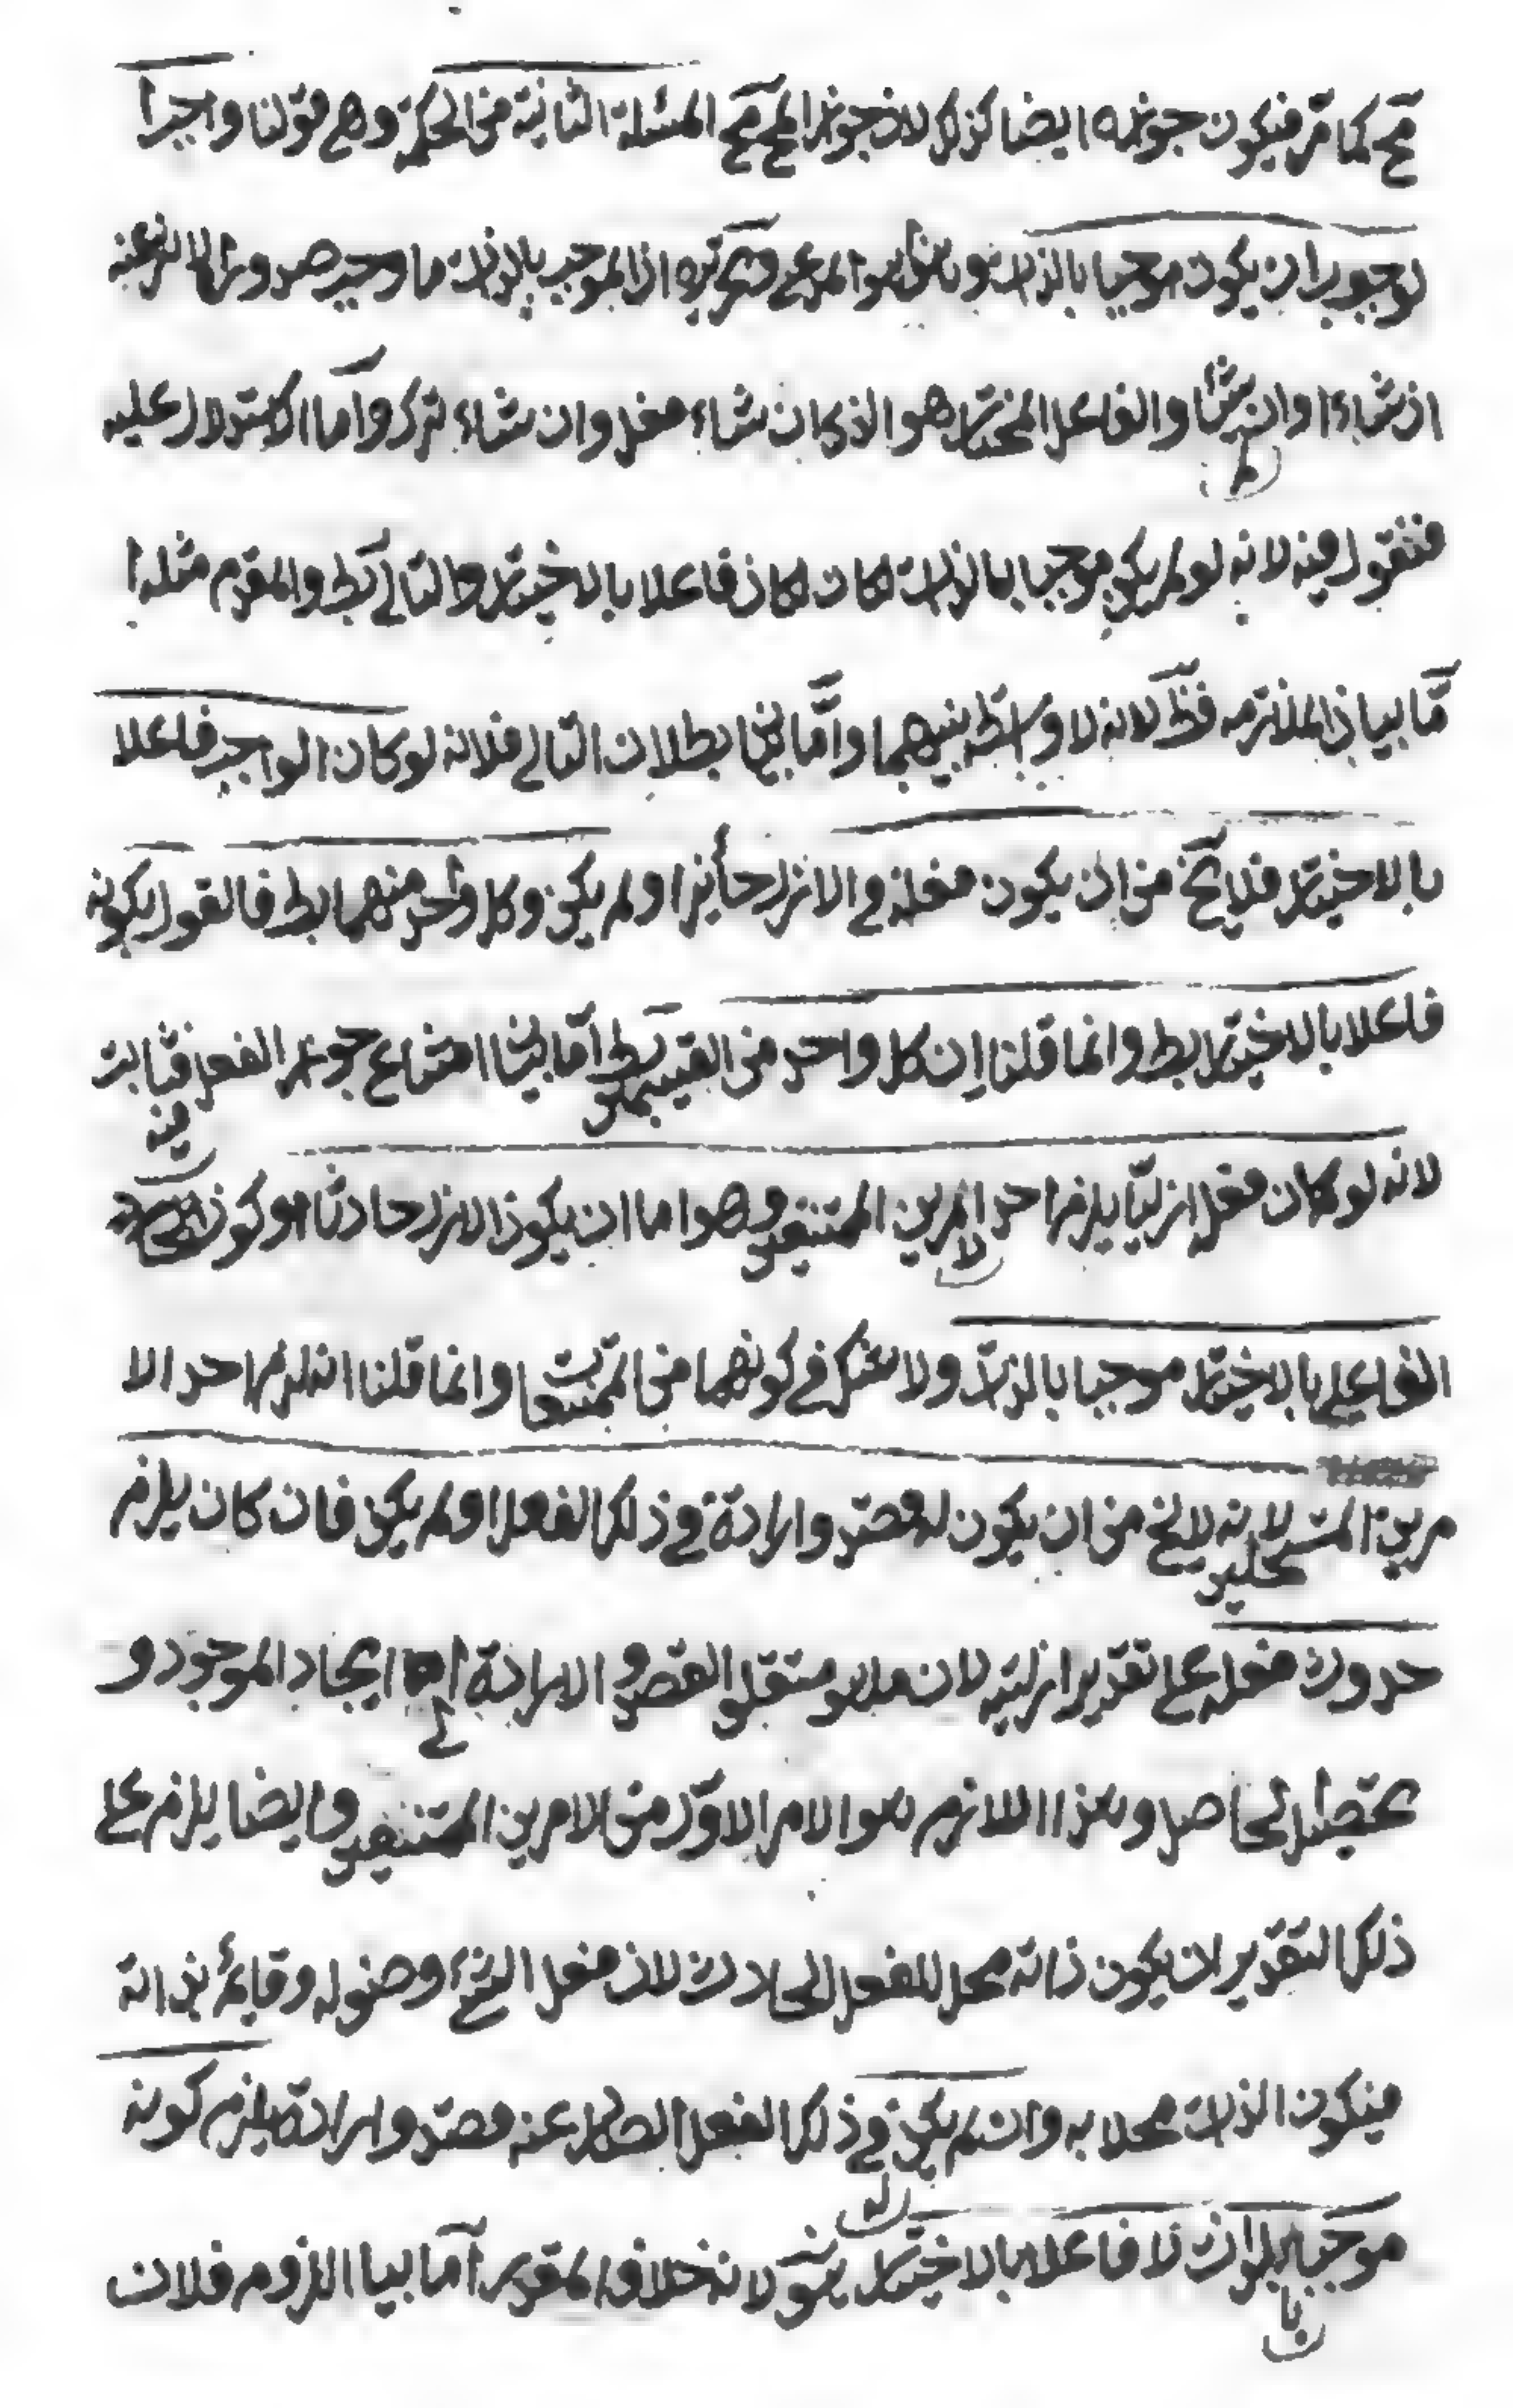 مح كما مر فيكون جوازه ايضا كذلك لان جواز المح مح المسئلة الثانية من الحكمة وهي قولنا واجبا
لوجوب ان يكون موجبا بالذات وهذا هو المدعى وتحريره اذ الموجب بالذات ما وجد صدور الاثر عنه
ان شاء وان لم يشأ والفاعل المختار هو الذي ان شاء فعل وان شاء ترك واما الاستدلال عليه
فنقول فيه لانه لو لم يكن موجبا بالذات لكان فاعلا بالاختيار والتالي بط والمقدم مثله ا
مّا بيان الملازمة فظ لانه لا واسطة بينهما وامّا بيا بطلان التالي فلانه لو كان الواجب فاعلا
بالاختيار فلا يخ من ان يكون فعله في الازل جائزا او لم يكن وكل واحد منهما بط فالقول بكونه
فاعلا بالاختيار بط وانما قلنا ان كل واحد من القسمين بط اما بيا امتناع جواز الفعل فثابت
لانه لو كان فعله ازليّا يلزم احد الامرين الممتنعين وهو اما ان يكون الازل حادثا او كون
الفاعل بالاختيار موجبا بالذات ولا شك في كونهما من الممتنعات وانما قلنا انه لزم احد الا
مرين المستحيلين لانه لا يخ من ان يكون له قصد وارادة في ذلك الفعل او لم يكن فان كان يلزم
حدوث فعله على تقدير ازليته لان ما هو متعلق القصد والارادة ايجاد الموجود و
تحصيل الحاصل وهذا اللازم هو الامر الاول من الامرين الممتنعين وايضا يلزم على
ذلك التقدير ان يكون ذاته محل للفعل الحادث لان فعل الشئ وصف له وقايم بذاته
فيكون الذات محلا به وان لم يكن له في ذلك الفعل الصادر عنه قصد وارادة يلزم كونه
موجبا بالذات لا فاعلا بالاختيار لانه خلاف المقدر اما بيا اللزوم فلان